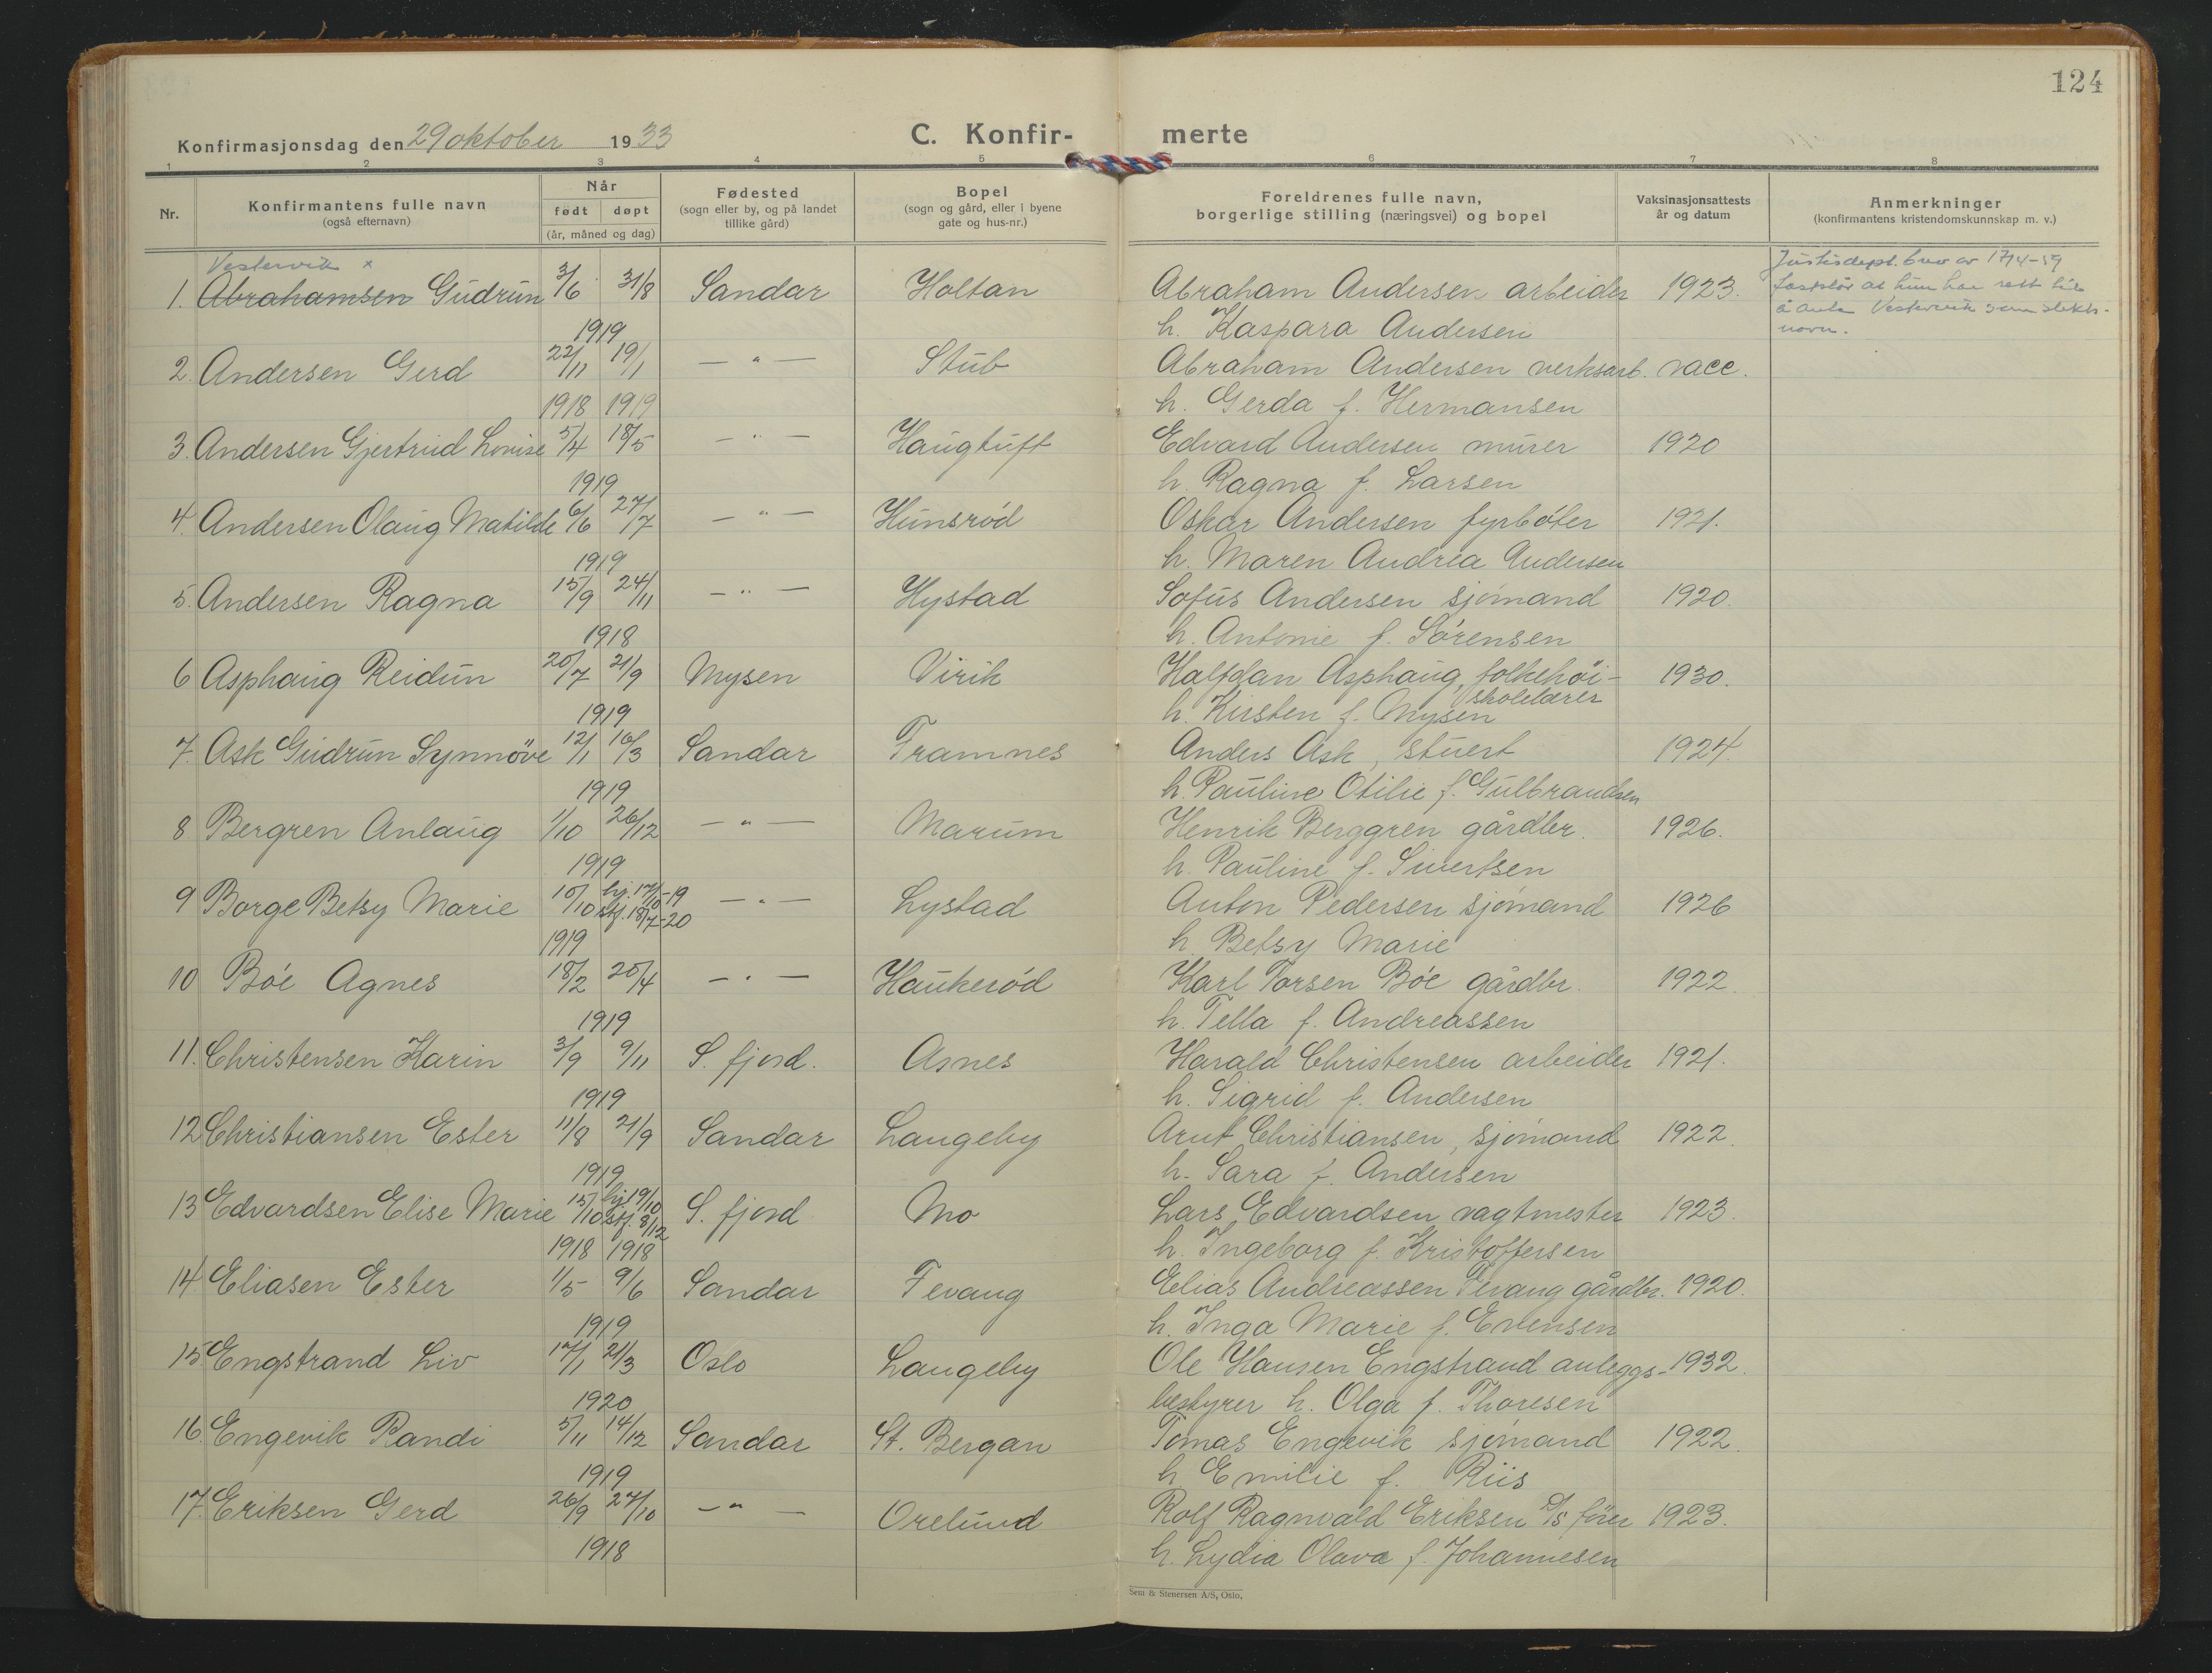 124
Konfirmasjonsdag den 29 oktober 1933
C. Konfir- merte
1 2 3 4 5 6 7 8
Nr.
Konfirmantens fulle navn
(også efternavn)
Når
født døpt
(år, måned og dag)
Fødested
(sogn eller by, og på landet
tillike gård)
Bopel
(sogn og gård, eller i byene
gate og hus-nr.)
Foreldrenes fulle navn,
borgerlige stilling (næringsvei) og bopel
Vaksinasjonsattests
år og datum
Anmerkninger
(konfirmantens kristendomskunnskap m. v.)
Vestervik x
Justisdept. brev av 17/4-59
1. Abrahamsen Gudrun 3/6 31/8 Sandar Holtan Abraham Andersen arbeider 1923.
fastslår at hun har rett til
å anta Vestervik som slekts-
navn.
1919 h. Kaspara Andersen
2. Andersen Gerd 22/11 19/1 — " — Stub Abraham Andersen verksarb. vacc.
1918 1919 h. Gerda f. Hermansen
3. Andersen Gjertrud Lovise 5/4 18/5 — " — Haugtuft Edvard Andersen murer 1920
1919 h. Ragna f. Larsen
4. Andersen Olaug Matilde 6/6 27/7 — " — Hunsrød Oskar Andersen fyrbøter 1921.
1919 h. Maren Andrea Andersen
5. Andersen Ragna 15/9 24/11 — " — Hystad Sofus Andersen sjømand 1920.
1918 h. Antonie f. Sørensen
6 Asphaug Reidun 20/7 21/9 Mysen Virik Halfdan Asphaug, folkehøi- 1930.
skolelærer
1919 h. Kirsten f. Mysen
7. Ask Gudrun Synnöve 12/1 16/3 Sandar Framnes Anders Ask, stuert 1924.
1919 h. Pauline Otilie f. Gulbrandsen
8. Bergren Anlaug 1/10 26/12 — " — Marum Henrik Berggren gårdbr. 1926.
1919 h. Pauline f. Sivertsen
9 Borge Betsy Marie 10/10 hj. 17/10-19 — " — Lystad Anton Pedersen sjømand 1926
stf. 18/7-20
1919 h. Betsy Marie
10 Bøe Agnes 18/2 20/4 — " — Haukerød Karl Torsen Bøe gårdbr. 1922.
1919 h. Tella f. Andreassen
11. Christensen Karin 3/9 9/11 S. fjord. Asnes Harald Christensen arbeider 1921.
1919 h. Sigrid f. Andersen
12 Christiansen Ester 11/8 21/9 Sandar Langeby Arnt Christiansen, sjømand 1922.
1919 h. Sara f. Andersen
13 Edvardsen Elise Marie 15/10 hj. 19/10 S. fjord Mo Lars Edvardsen vagtmester 1923.
stf. 8/12
1918 1918 h. Ingeborg f. Kristoffersen
14. Eliasen Ester 1/5 9/6 Sandar Fevang Elias Andreassen Fevang gårdbr. 1920.
1919 h. Inga Marie f. Evensen
15 Engstrand Liv 17/1 21/3 Oslo Langeby Ole Hansen Engstrand anleggs- 1932.
1920 bestyrer h. Olga f. Thoresen
16. Engevik Randi 5/11 14/12 Sandar St. Bergan Tomas Engevik sjømand 1922.
1919 h Emilie f. Riis
17. Eriksen Gerd 26/9 27/10 — " — Orelund Rolf Ragnvald Eriksen D/S fører 1923.
1918 h. Lydia Olava f. Johannesen
Sem & Stenersen A/S, Oslo.